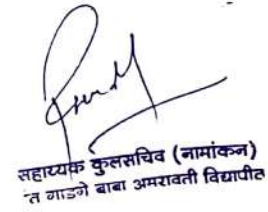 सहाय्यक कुलसचिव (नामांकन)
त गाडगे बाबा अमरावती विद्यापीठ